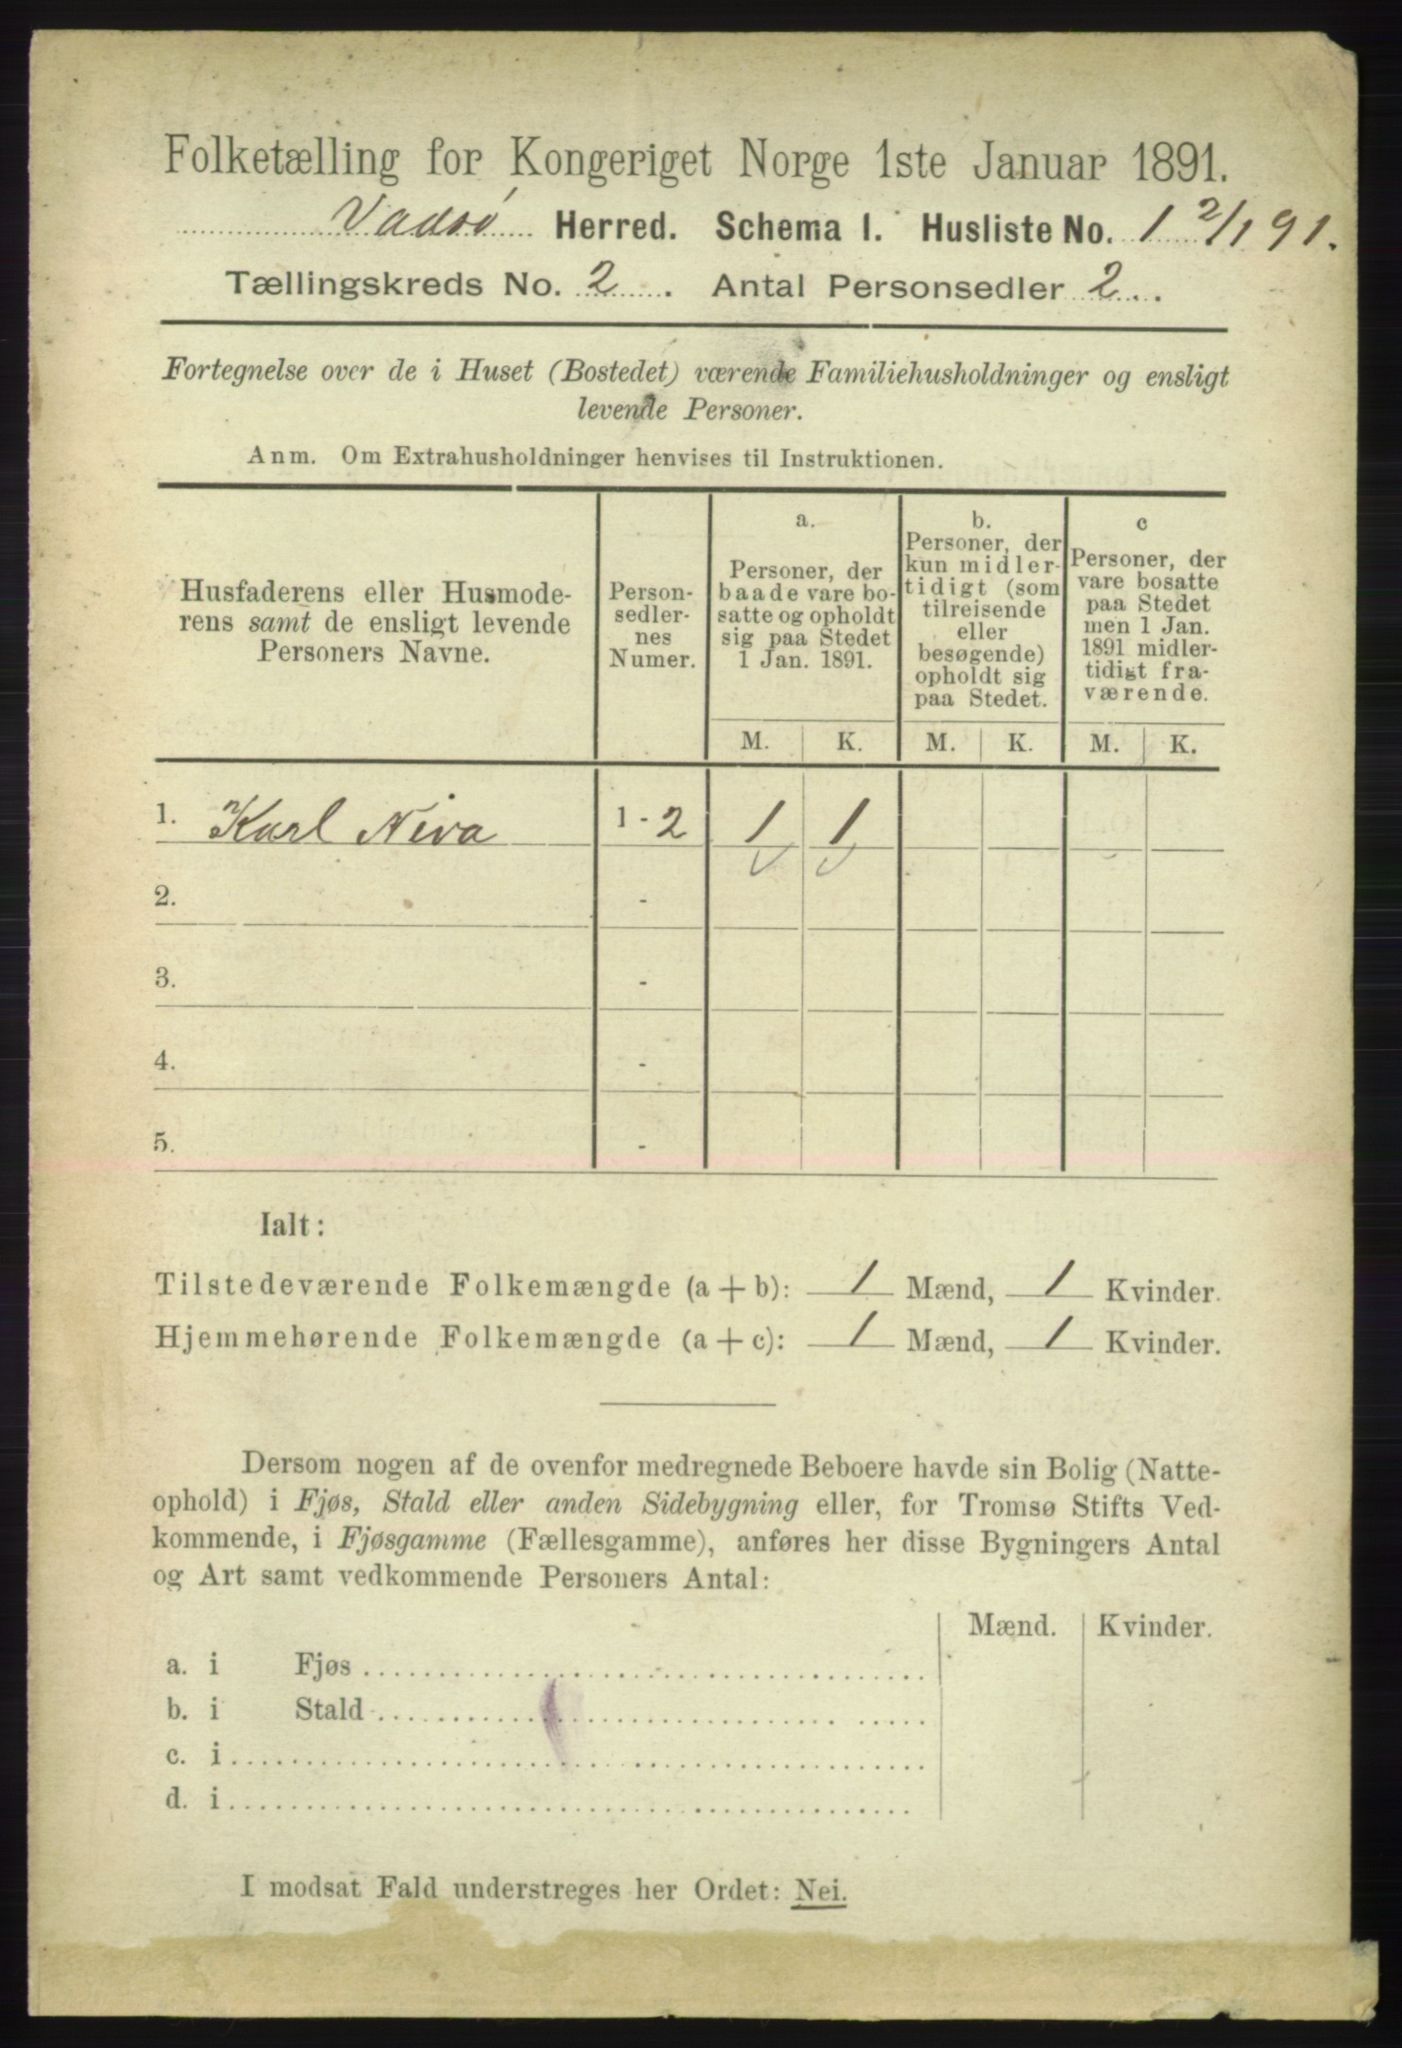 Folketælling for Kongeriget Norge 1ste Januar 1891.
Vadsø Herred. Schema I. Husliste No. 1 2/1 91.
Tællingskreds No. 2. Antal Personsedler 2.
Fortegnelse over de i Huset (Bostedet) værende Familiehusholdninger og ensligt
levende Personer.
Anm. Om Extrahusholdninger henvises til Instruktionen.
Husfaderens eller Husmode-
rens samt de ensligt levende
Personers Navne.
Person-
sedler-
nes
Numer.
a.
Personer, der
baade vare bo-
satte og opholdt
sig paa Stedet
1 Jan. 1891.
b.
Personer, der
kun midler-
tidigt (som
tilreisende
eller
besøgende)
opholdt sig
paa Stedet.
c
Personer, der
vare bosatte
paa Stedet
men 1 Jan.
1891 midler-
tidigt fra-
værende.
M. K. M. K. M. K.
1. Karl Niva 1-2 1 1
2. -
3. -
4. -
5. -
Ialt:
Tilstedeværende Folkemængde (a + b): 1 Mænd, 1 Kvinder.
Hjemmehørende Folkemængde (a + c): 1 Mænd, 1 Kvinder.
Dersom nogen af de ovenfor medregnede Beboere havde sin Bolig (Natte-
ophold) i Fjøs, Stald eller anden Sidebygning eller, for Tromsø Stifts Ved-
kommende, i Fjøsgamme (Fællesgamme), anføres her disse Bygningers Antal
og Art samt vedkommende Personers Antal:
Mænd. Kvinder.
a. i Fjøs
b. i Stald
c. i
d. i
I modsat Fald understreges her Ordet: Nei.